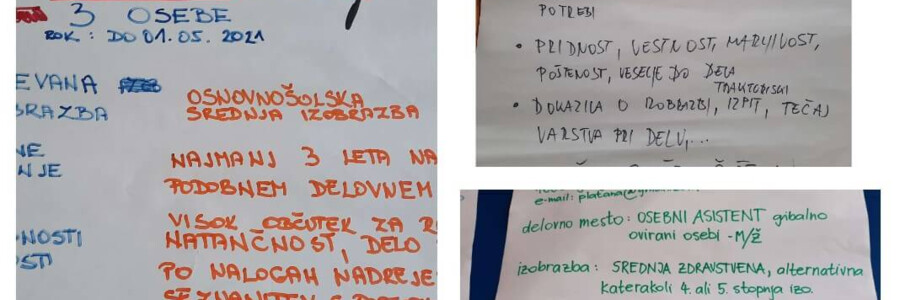 3 OSEBE
ROK: DO 01.05.2021
EVANA
BRAZBA
OSNOVNOŠOLSKA
SREDNJA IZOBRAZBA
NE
NJE
NAJMANJ 3 LETA NA
PODOBNEM DELOVNEM
NOSTI
STI
VISOK OBČUTEK ZA R
NATANČNOST, DELO
PO NALOGAH NADREJE
POTREBI
• PRIDNOST, VESTNOST, MARLJIVOST,
POŠTENOST, VESELJE DO DELA
TRAKTORISKI
• DOKAZILA O IZOBRAZBI, IZPIT, TEČAJ
VARSTVA PRI DELU,...
e-mail: platana@
delovno mesto: OSEBNI ASISTENT gibalno
ovirani osebi - M/Ž
izobrazba: SREDNJA ZDRAVSTVENA, alternativna
katerakoli 4. ali 5. stopnja izo.